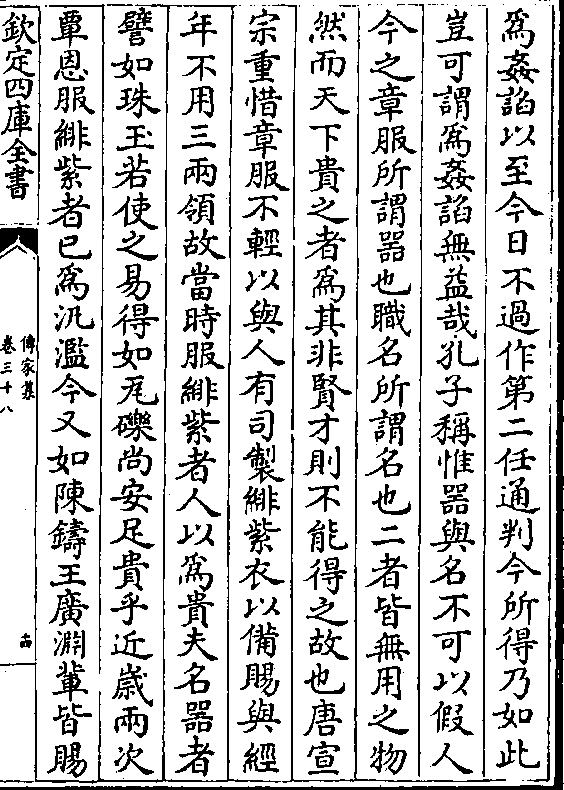 爲姦諂以至今日不過作第二任通判今所得乃如此
豈可謂爲姦諂無益哉孔子稱惟器與名不可以假人
今之章服所謂器也職名所謂名也二者皆無用之物
然而天下貴之者爲其非賢才則不能得之故也唐宣
宗重惜章服不輕以與人有司製緋紫衣以備賜與經
年不用三兩領故當時服緋紫者人以爲貴夫名器者
譬如珠玉若使之易得如瓦礫尚安足貴乎近嵗兩次
覃恩服緋紫者已爲汎濫今又如陳鑄王廣淵輩皆賜
欽定四庫全書
傳家集
卷三十八
十四